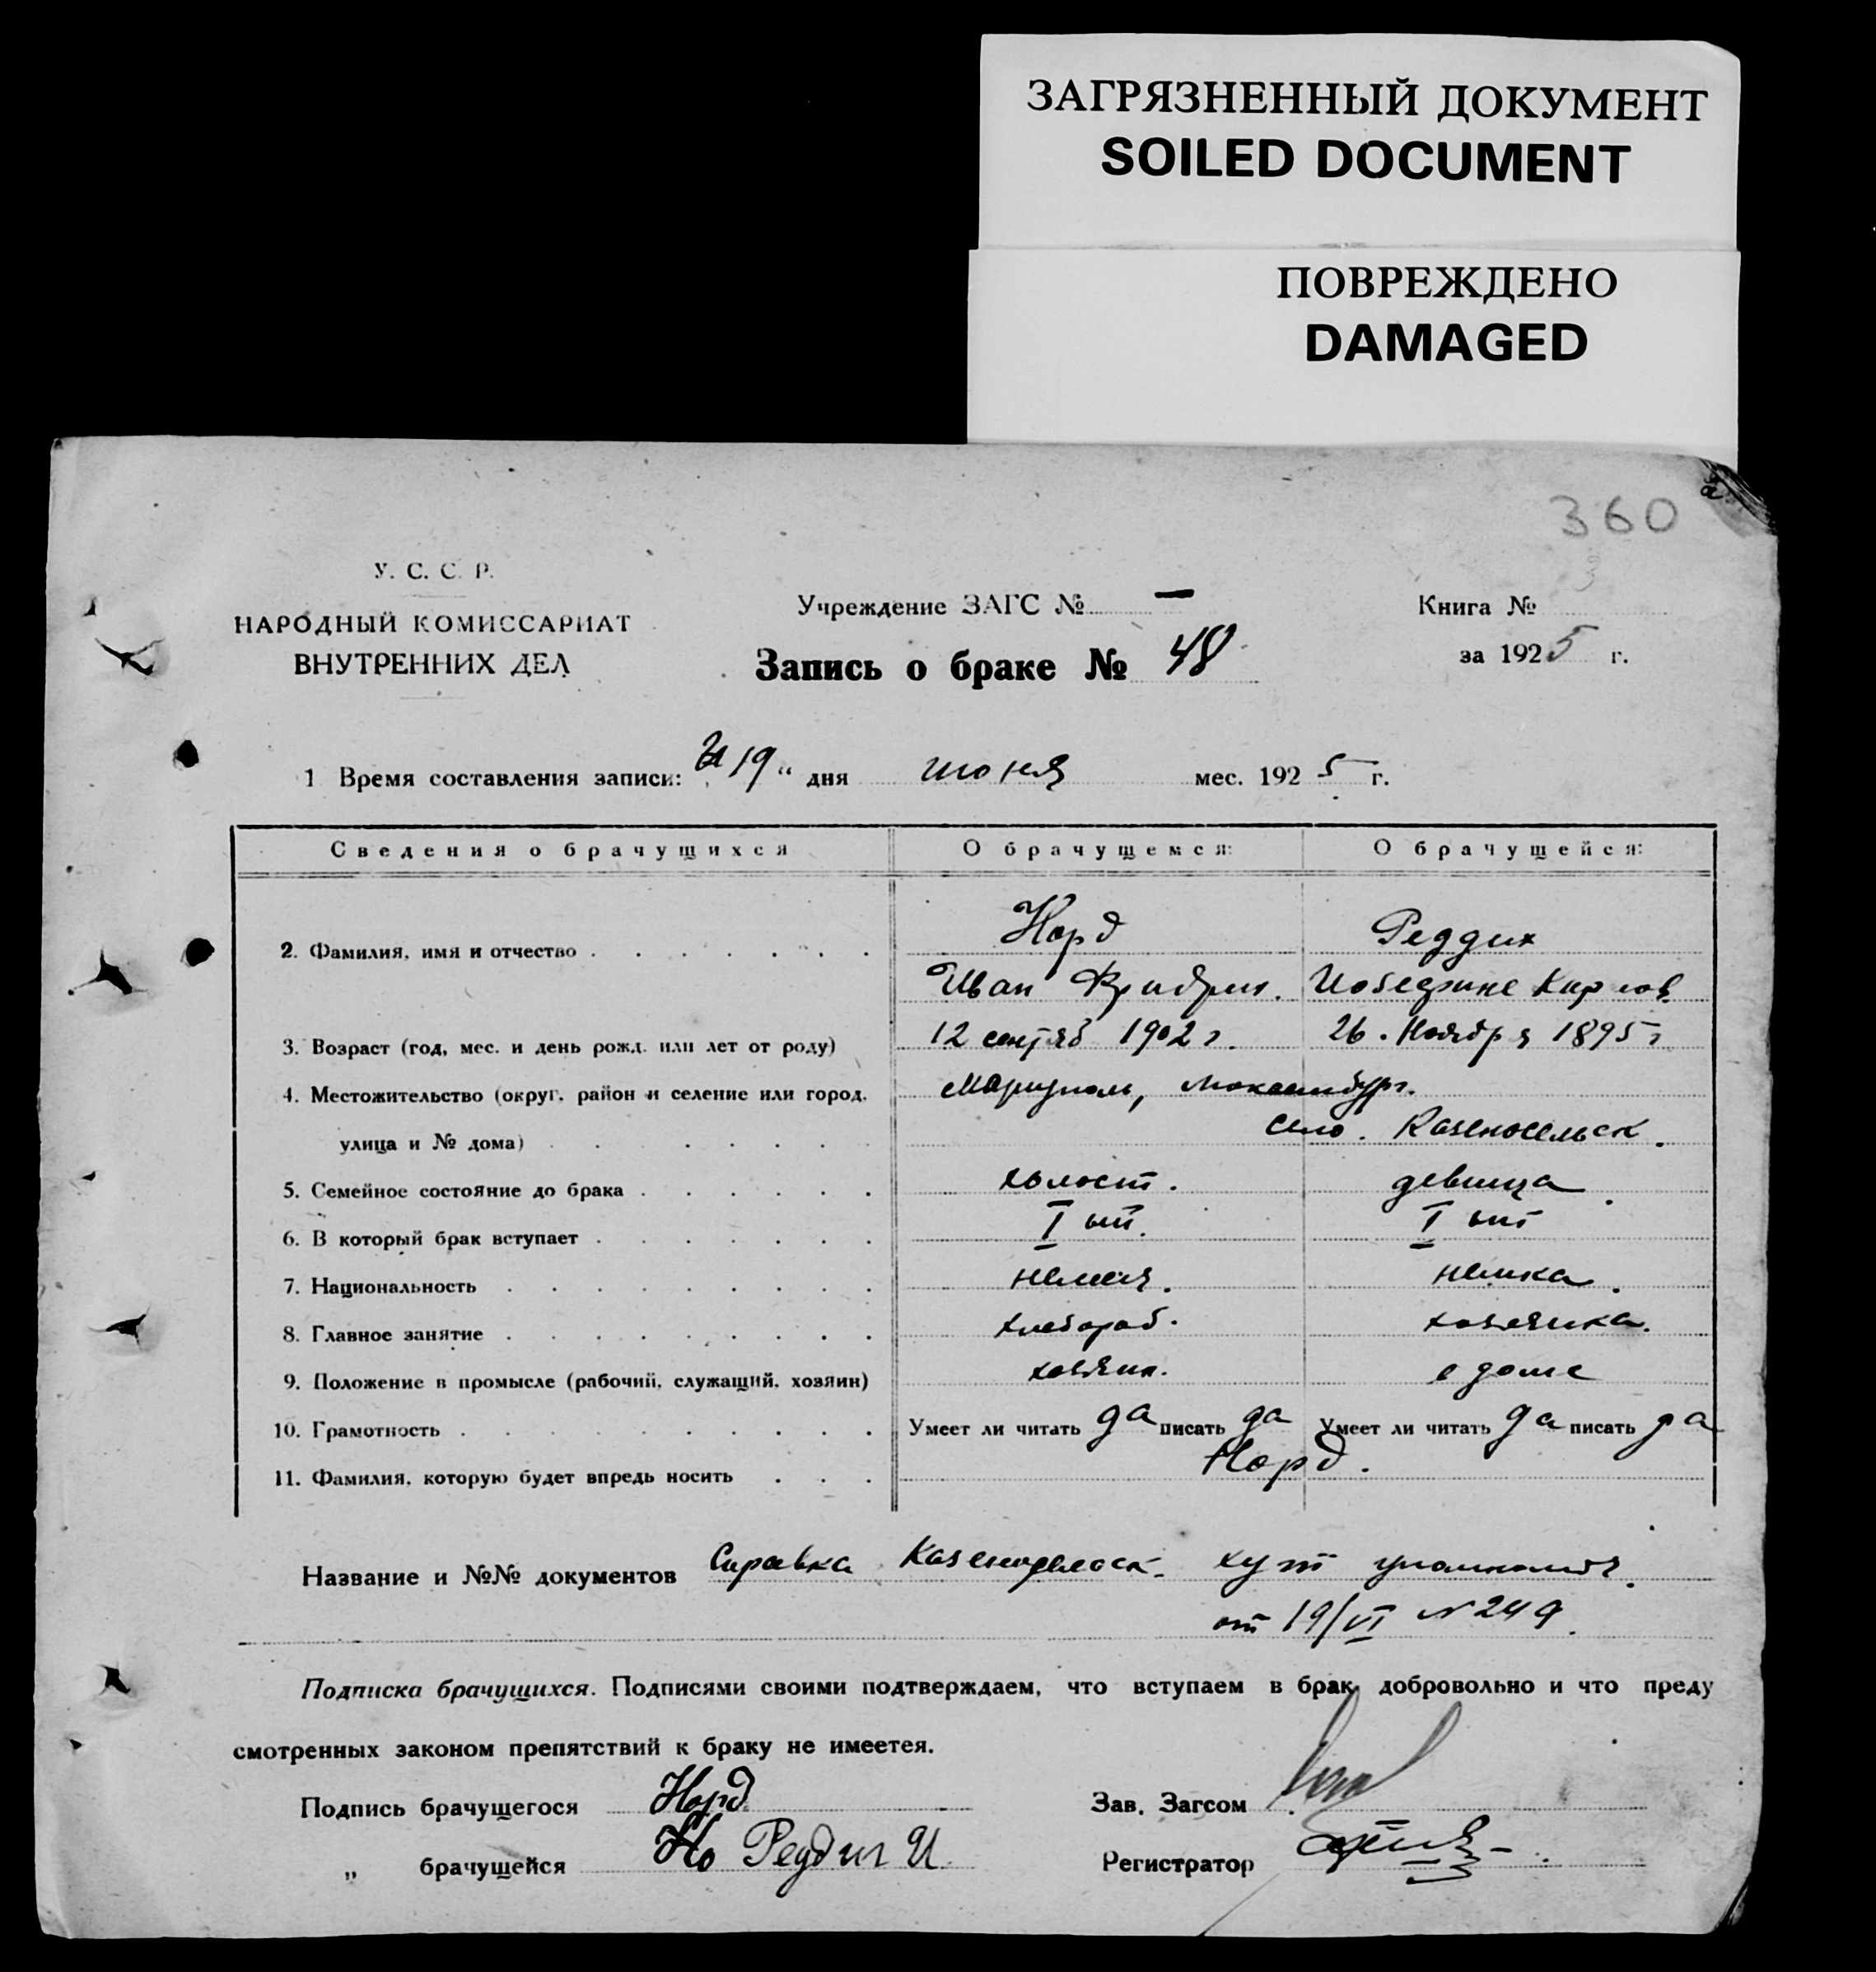 ЗАГРЯЗНЕННЫЙ ДОКУМЕНТ
SOILED DOCUMENT
ПОВРЕЖДЕНО
DAMAGED
360
У. С. С. Р.
НАРОДНЫЙ КОМИССАРИАТ
ВНУТРЕННИХ ДЕЛ
Учреждение ЗАГС № —
Запись о браке № 48
Книга №
за 1925 г.
1 Время составления записи: 19 " дня июня мес. 1925 г.
Сведения о брачущихся О брачущемся: О брачущейся:
2. Фамилия, имя и отчество Норд Реддих
Иван Фридрих. Карлов.
3. Возраст (год, мес. и день рожд. или лет от роду) 12 сентяб 1902 г. 26. Ноября 1895 г
4. Местожительство (округ, район и селение или город, Мариуполь,
улица и № дома) село. Казеносельск.
5. Семейное состояние до брака холост. девица.
6. В который брак вступает I ый. I ый
7. Национальность немец. немка.
8. Главное занятие хлебороб. хозяйка.
9. Положение в промысле (рабочий, служащий, хозяин) хозяин. в доме
10. Грамотность Умеет ли читать да писать да Умеет ли читать да писать да
11. Фамилия, которую будет впредь носить Норд.
Название и №№ документов Справка хут
от 19/VI N 249.
Подписка брачущихся. Подписями своими подтверждаем, что вступаем в брак добровольно и что преду
смотренных законом препятствий к браку не имеетея.
Подпись брачущегося Норд
Зав. Загсом
„ брачущейся Но Реддих И
Регистратор